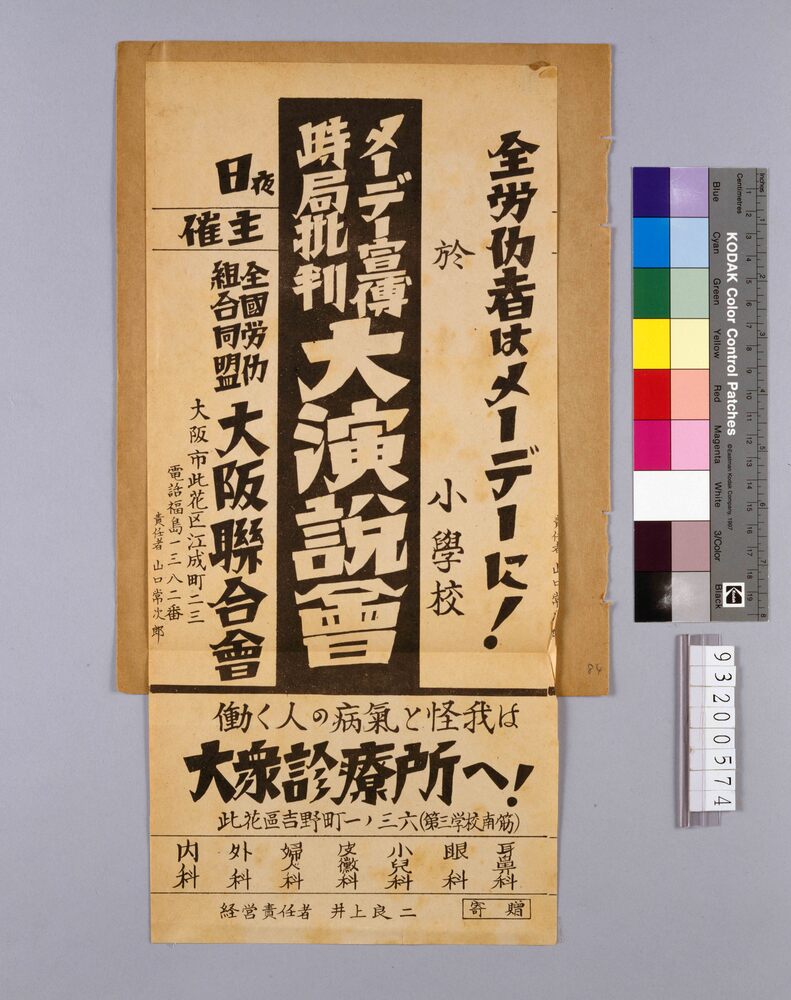 全労仂者はメーデーに！
於　　小學校
メーデー宣傳
時局批判
大演說會
日夜
主催
全國労仂
組合同盟
大阪聯合會
大阪市此花区江成町二三
電話福島一三八二番
責任者 山口常次郎
働く人の病氣と怪我は
大衆診療所へ！
此花區吉野町一ノ三六(第三学校南筋)
耳鼻科
眼科
小兒科
皮黴科
婦人科
外科
内科
経営責任者 井上良二
寄贈
責任者 山口常
84
KODAK Color Control Patches
©Eastman Kodak Company, 1997
Inches
Centimetres
Blue
Cyan
Green
Yellow
Red
Magenta
White
3/Color
Black
Kodak
93200574